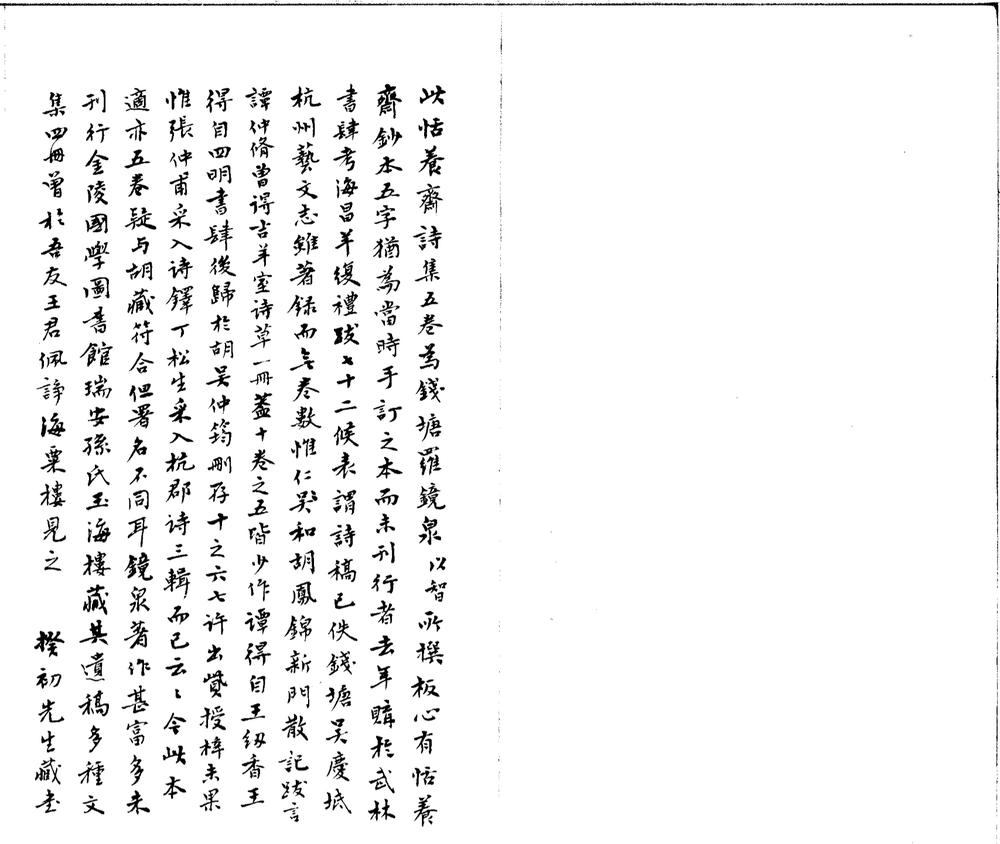 此恬養齋詩集五卷為錢塘羅鏡泉以智所撰板心有恬養
齋鈔本五字猶為當時手訂之本而未刊行者去年購於武林
書肆考海昌羊復禮跋七十二候表謂詩稿已佚錢塘吴慶坻
杭州藝文志雖著録而無卷數惟仁和胡鳳錦新門散記跋言
譚仲脩曾得吉羊室诗草一冊蓋十卷之五皆少作譚得自王纫香王
得自四明書肆後歸於胡吴仲筠刪存十之六七许出貲授梓未果
惟張仲甫采入诗鐸丁松生采入杭郡诗三輯而已云〻今此本
適亦五卷疑与胡藏符合但署名不同耳鏡泉著作甚富多未
刊行金陵國學圖書館瑞安孫氏玉海樓藏其遺稿多種文
集四冊曾於吾友王君佩諍海粟樓見之　揆初先生藏书